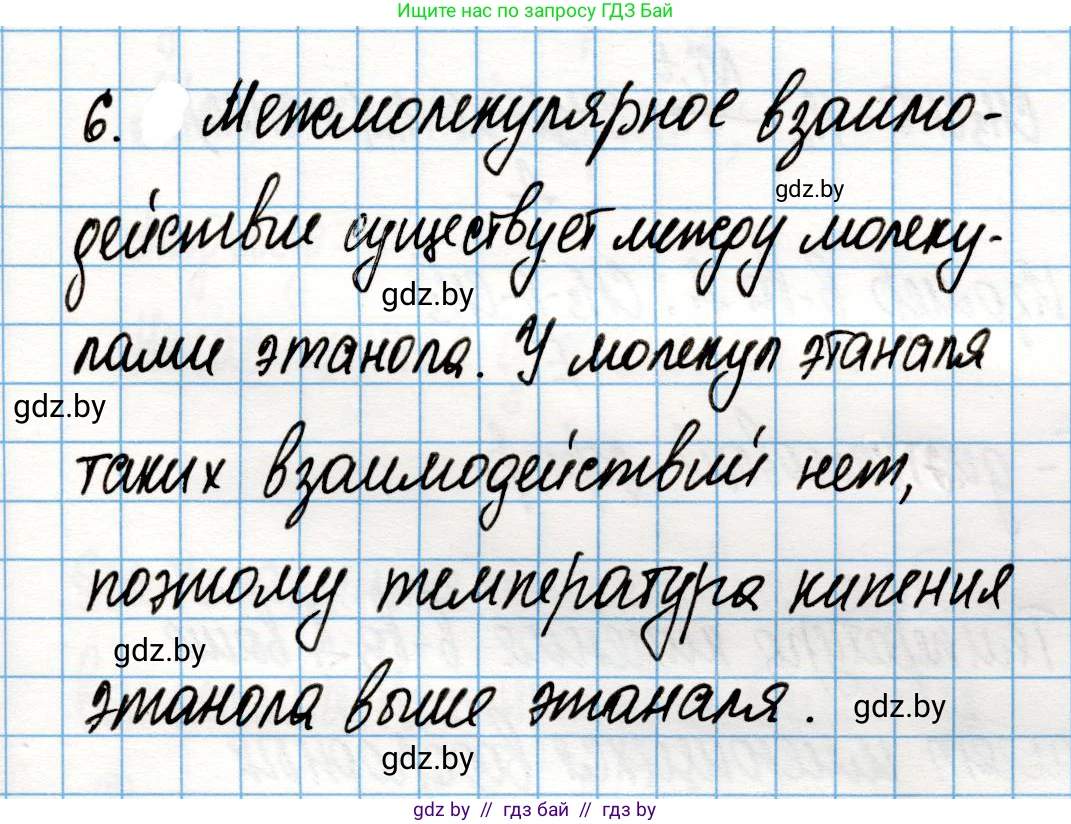 Ищите нас по запросу ГДЗ Бай
6. Межмолекулярное взаимо-
gdz.by
действие существует между молеку-
gdz.by
лами этанола. У молекул этаналя
gdz.by
таких взаимодействий нет,
поэтому температура кипения
gdz.by
этанола выше этаналя.
gdz.by
gdz.by
gdz by // гдз бай // гdz by